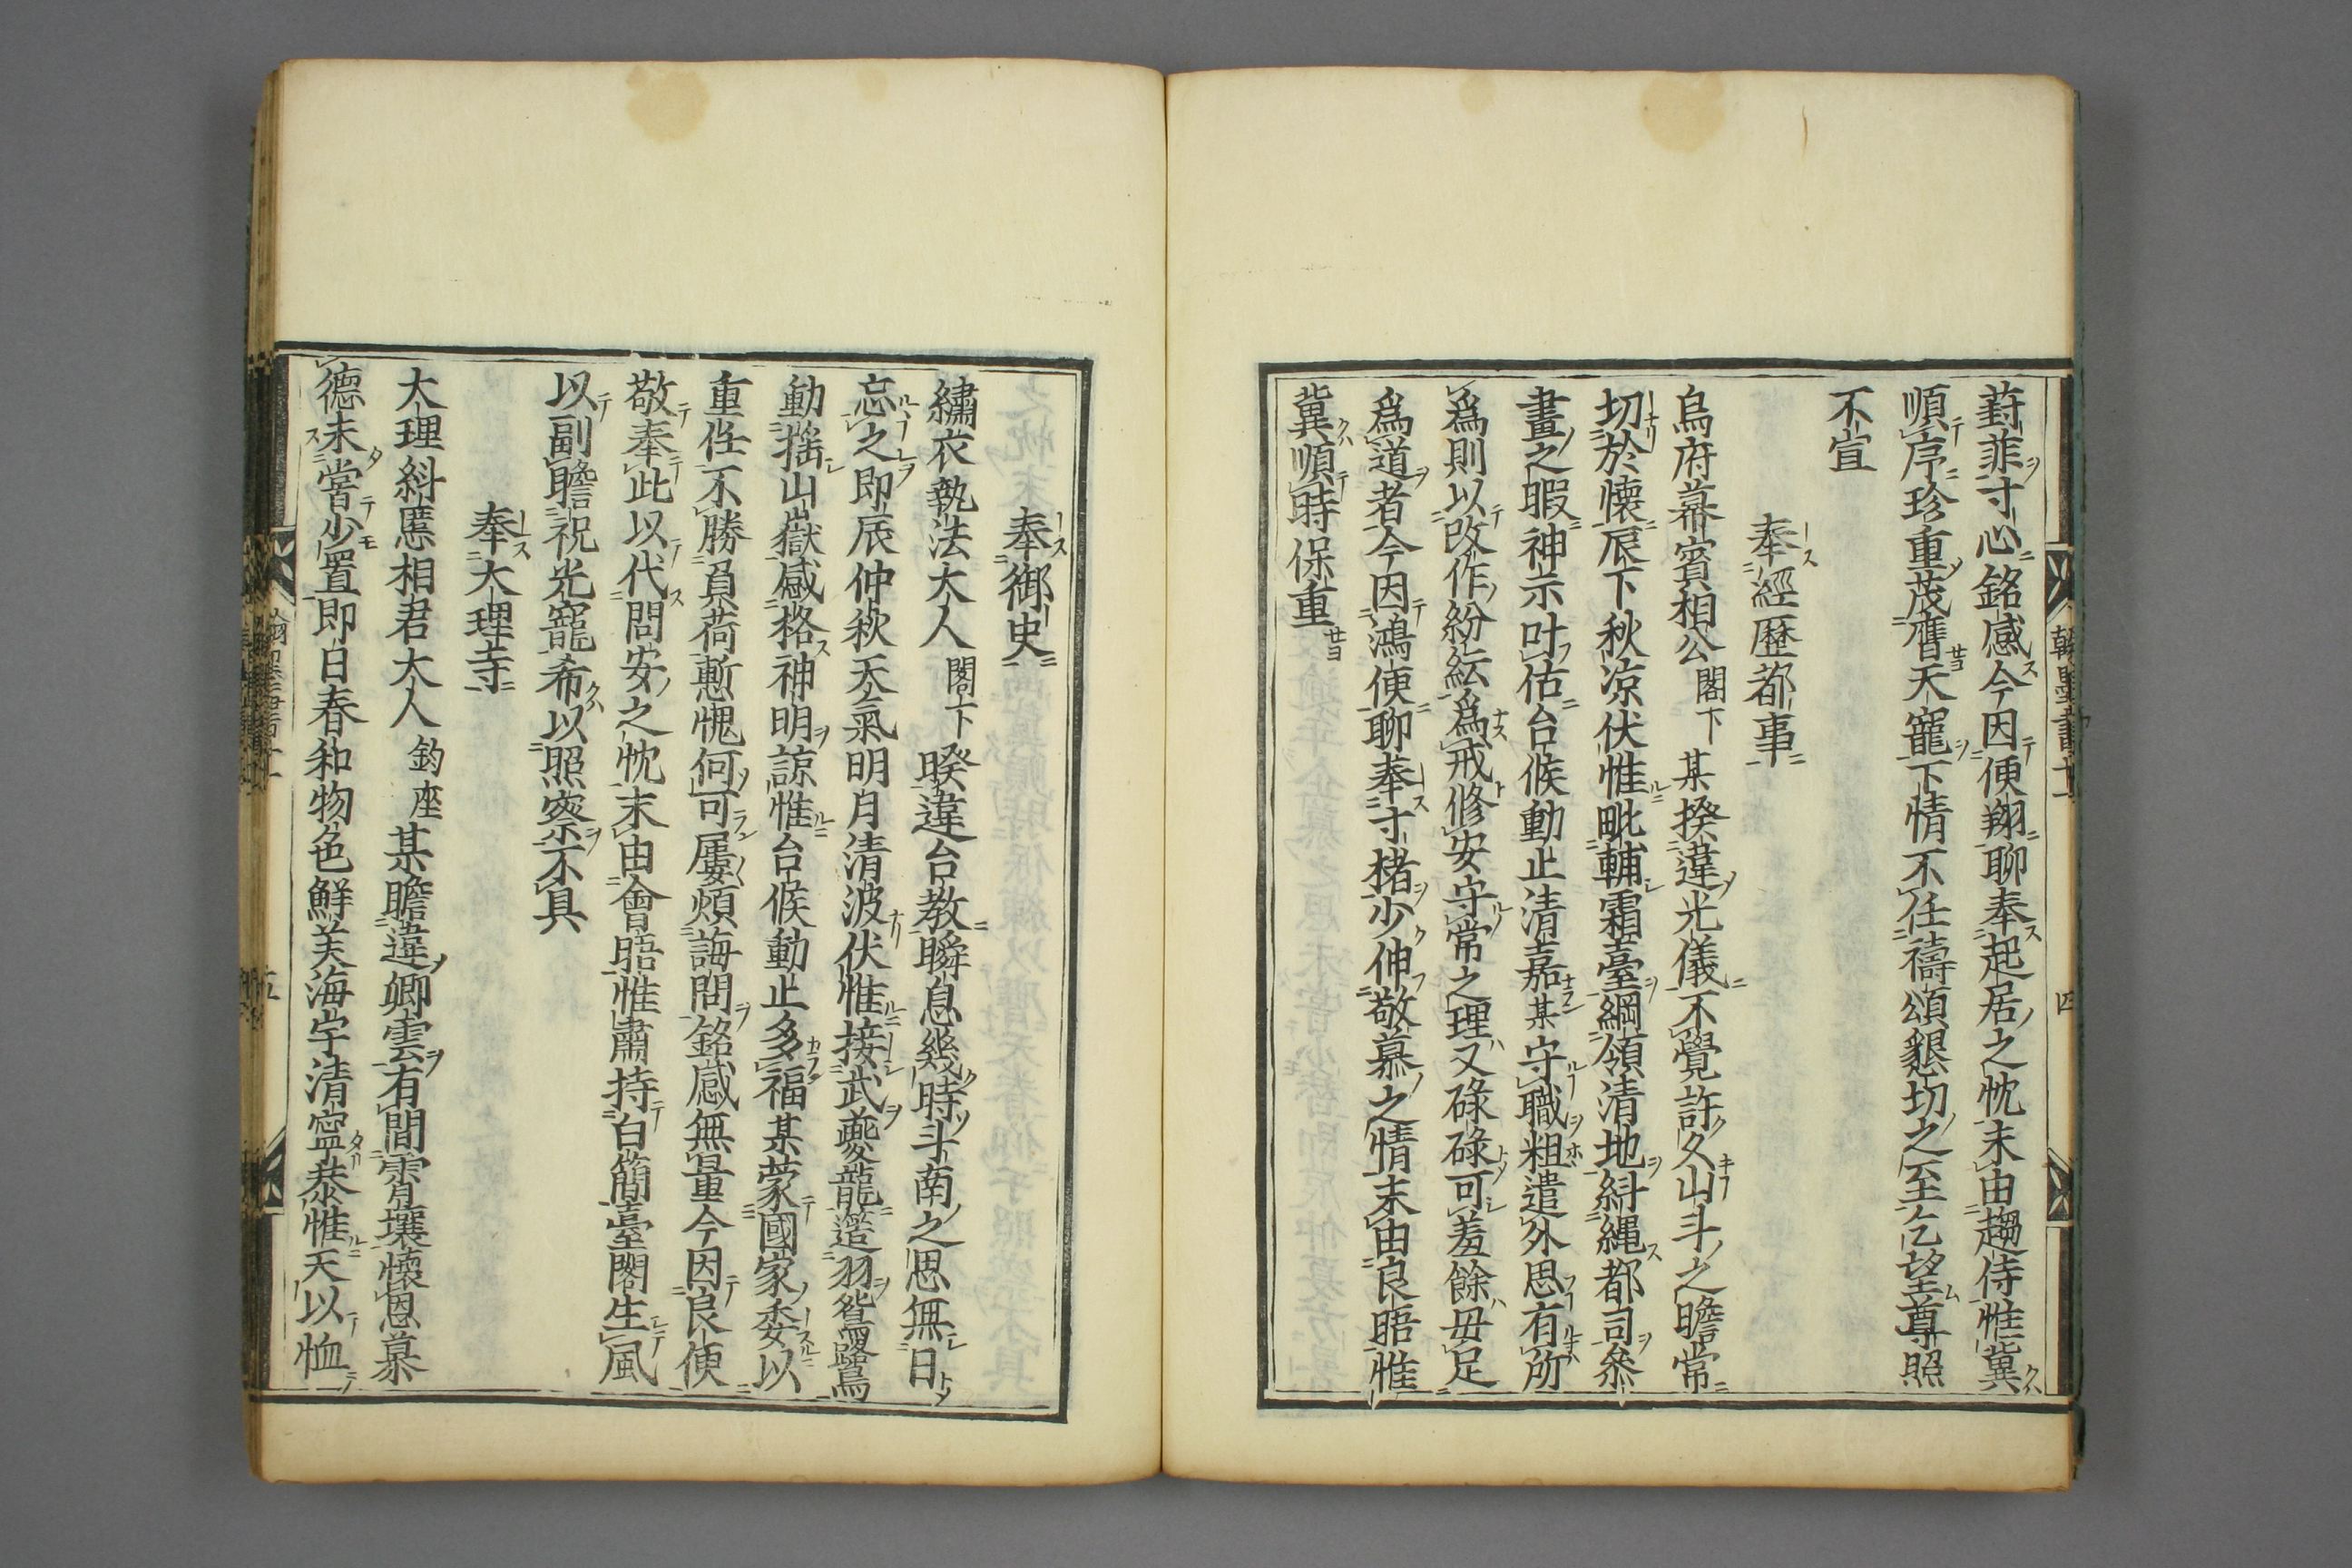 葑菲寸心銘感今因便翔聊奉起居之忱未由趨侍惟冀
順序珍重茂膺天寵下情不任禱頌懇切之至乞望尊照
不宣
奉經歷都事
烏府幕賓相公閣下某揆違光儀不覺許久山斗之瞻常
切於懐辰下秋凉伏惟毗輔霜臺綱領清地糾縄都司叅
畫之暇神示叶佑台候動止清嘉某守職粗遣外思有所
爲則以改作紛紜爲戒修安守常之理又碌碌可羞餘毋足
爲道者今因鴻便聊奉寸楮少伸敬慕之情未由良晤惟
冀順時保重
翰墨書十 四
奉御史
繡衣執法大人閣下暌違台教瞬息幾時斗南之思無日
忘之即辰仲秋天氣明月清波伏惟接武夔龍簉羽鴛鷺
動揺山嶽感格神明諒惟台候動止多福某蒙國家委以
重任不勝負荷慙愧何可屢煩誨問銘感無量今因良便
敬奉此以代問安之忱未由會晤惟肅持白簡臺閣生風
以副瞻祝光寵希以照察不具
奉大理寺
大理糾慝相君大人鈞座某瞻違卿雲有間霄壤懐恩慕
德未嘗少置即日春和物色鮮美海宇清寧恭惟天以恤